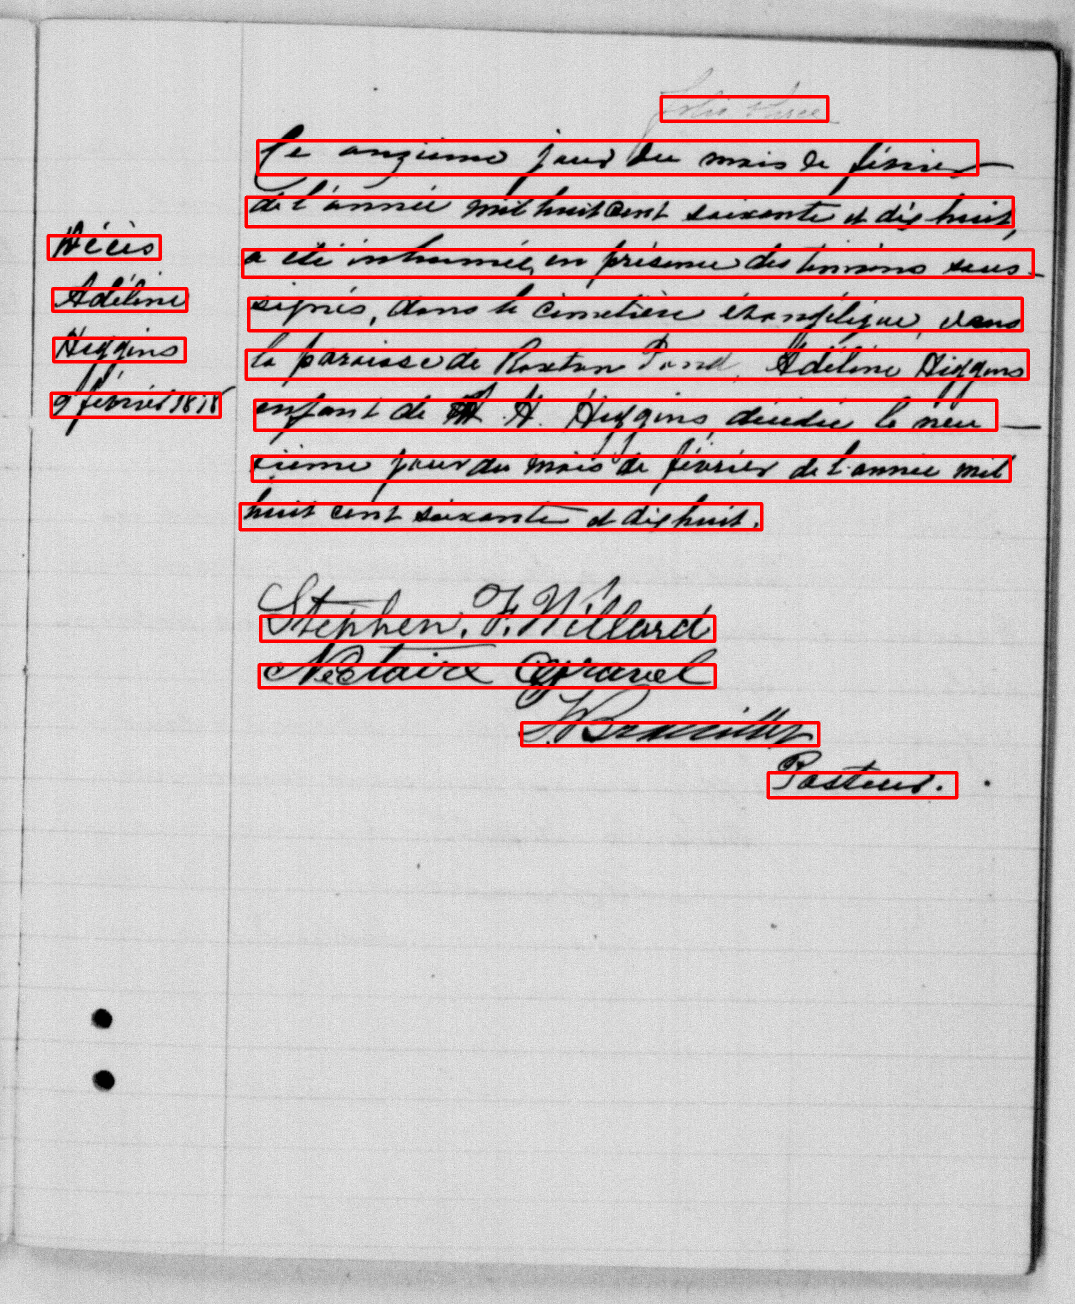 Décès
Adéline
Higgins
9 février 1878
Ce onzième jour du mois de février
de l'année mil huit cent soixante et dix huit,
a été inhumée, en présence des témoins sous-
signés, dans le cimetière évangélique, dans
la paroisse de Roxton Pond, Adéline Higgins
enfant de H. Higgins, décédée le neu-
vième jour du mois de février de l'année mil
huit cent soixante et dix huit.
Stephen. F. Willard
Nectaire Gravel
Pasteur.